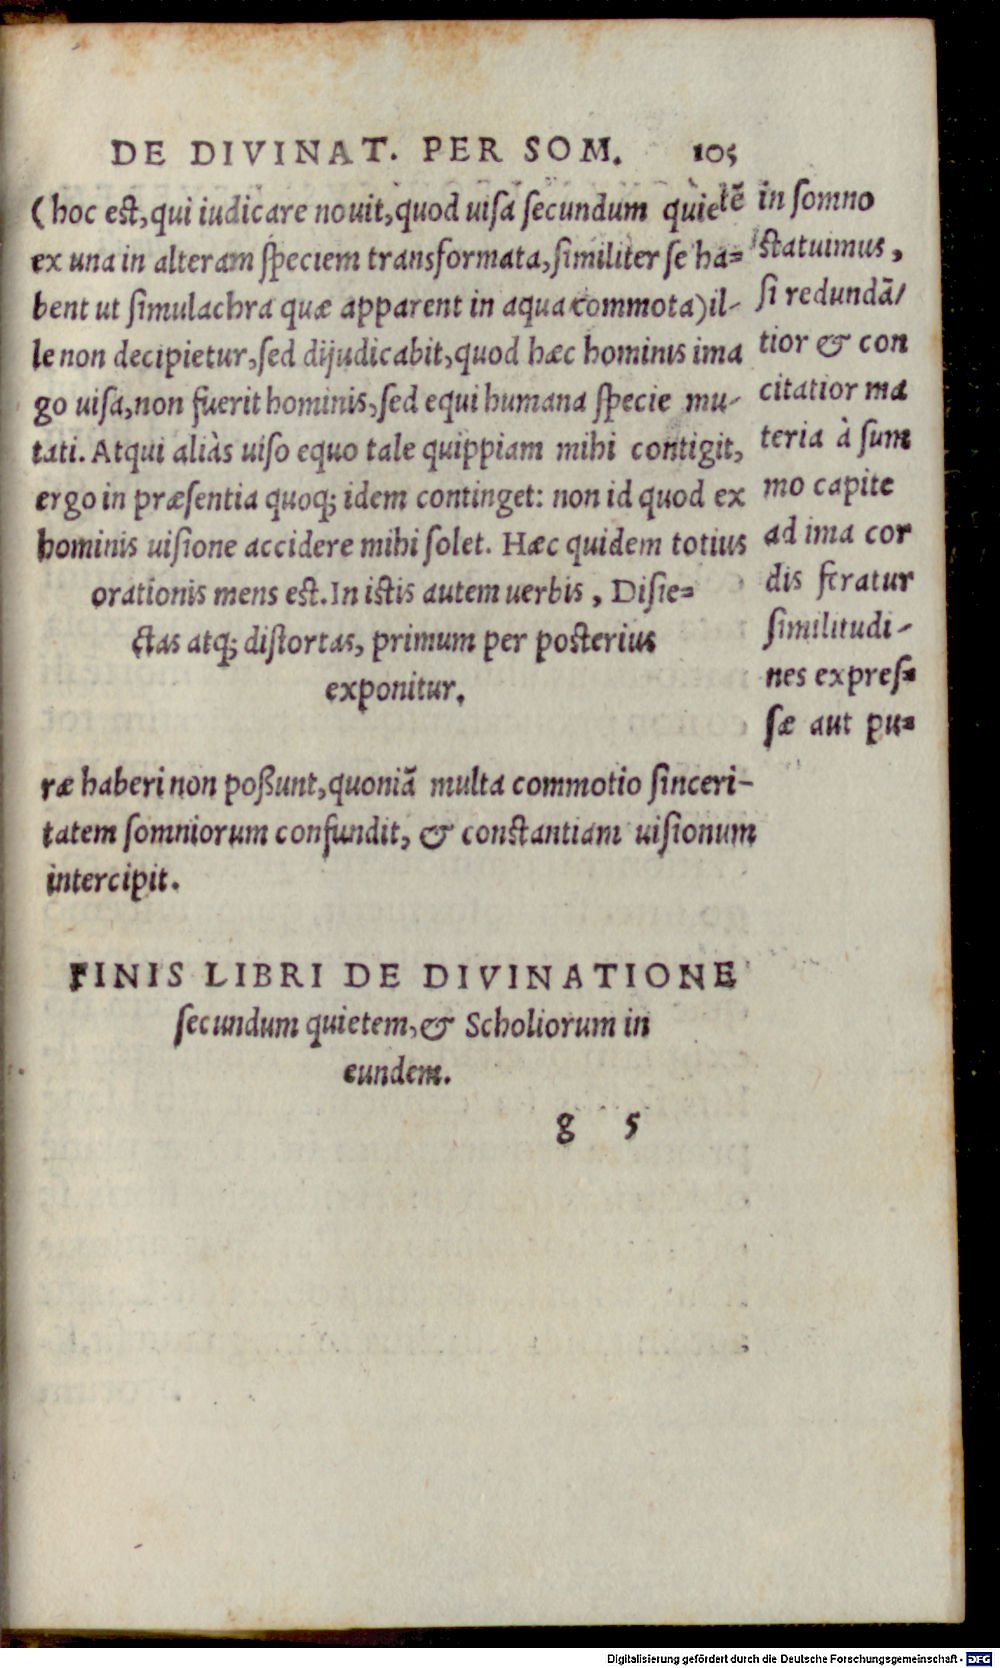 DE DIVINAT. PER SOM. 105
(hoc est, qui iudicare nouit, quod uisa secundum quietẽ
ex una in alteram speciem transformata, similiter se ha=
bent ut simulachra quæ apparent in aqua commota) il-
le non decipietur, sed dijudicabit, quod hæc hominis ima
go uisa, non fuerit hominis, sed equi humana specie mu-
tati. Atqui aliàs uiso equo tale quippiam mihi contigit,
ergo in præsentia quoq; idem continget: non id quod ex
hominis uisione accidere mihi solet. Hæc quidem totius
orationis mens est. In istis autem uerbis, Disie=
ctas atq; distortas, primum per posterius
exponitur.
in somno
statuimus,
si redundã/
tior & con
citatior ma
teria à sum
mo capite
ad ima cor
dis feratur
similitudi-
nes expres=
sæ aut pu=
ræ haberi non possunt, quoniã multa commotio sinceri-
tatem somniorum confundit, & constantiam uisionum
intercipit.
FINIS LIBRI DE DIVINATIONE
secundum quietem, & Scholiorum in
eundem.
g 5
Digitalisierung gefördert durch die Deutsche Forschungsgemeinschaft - DFG